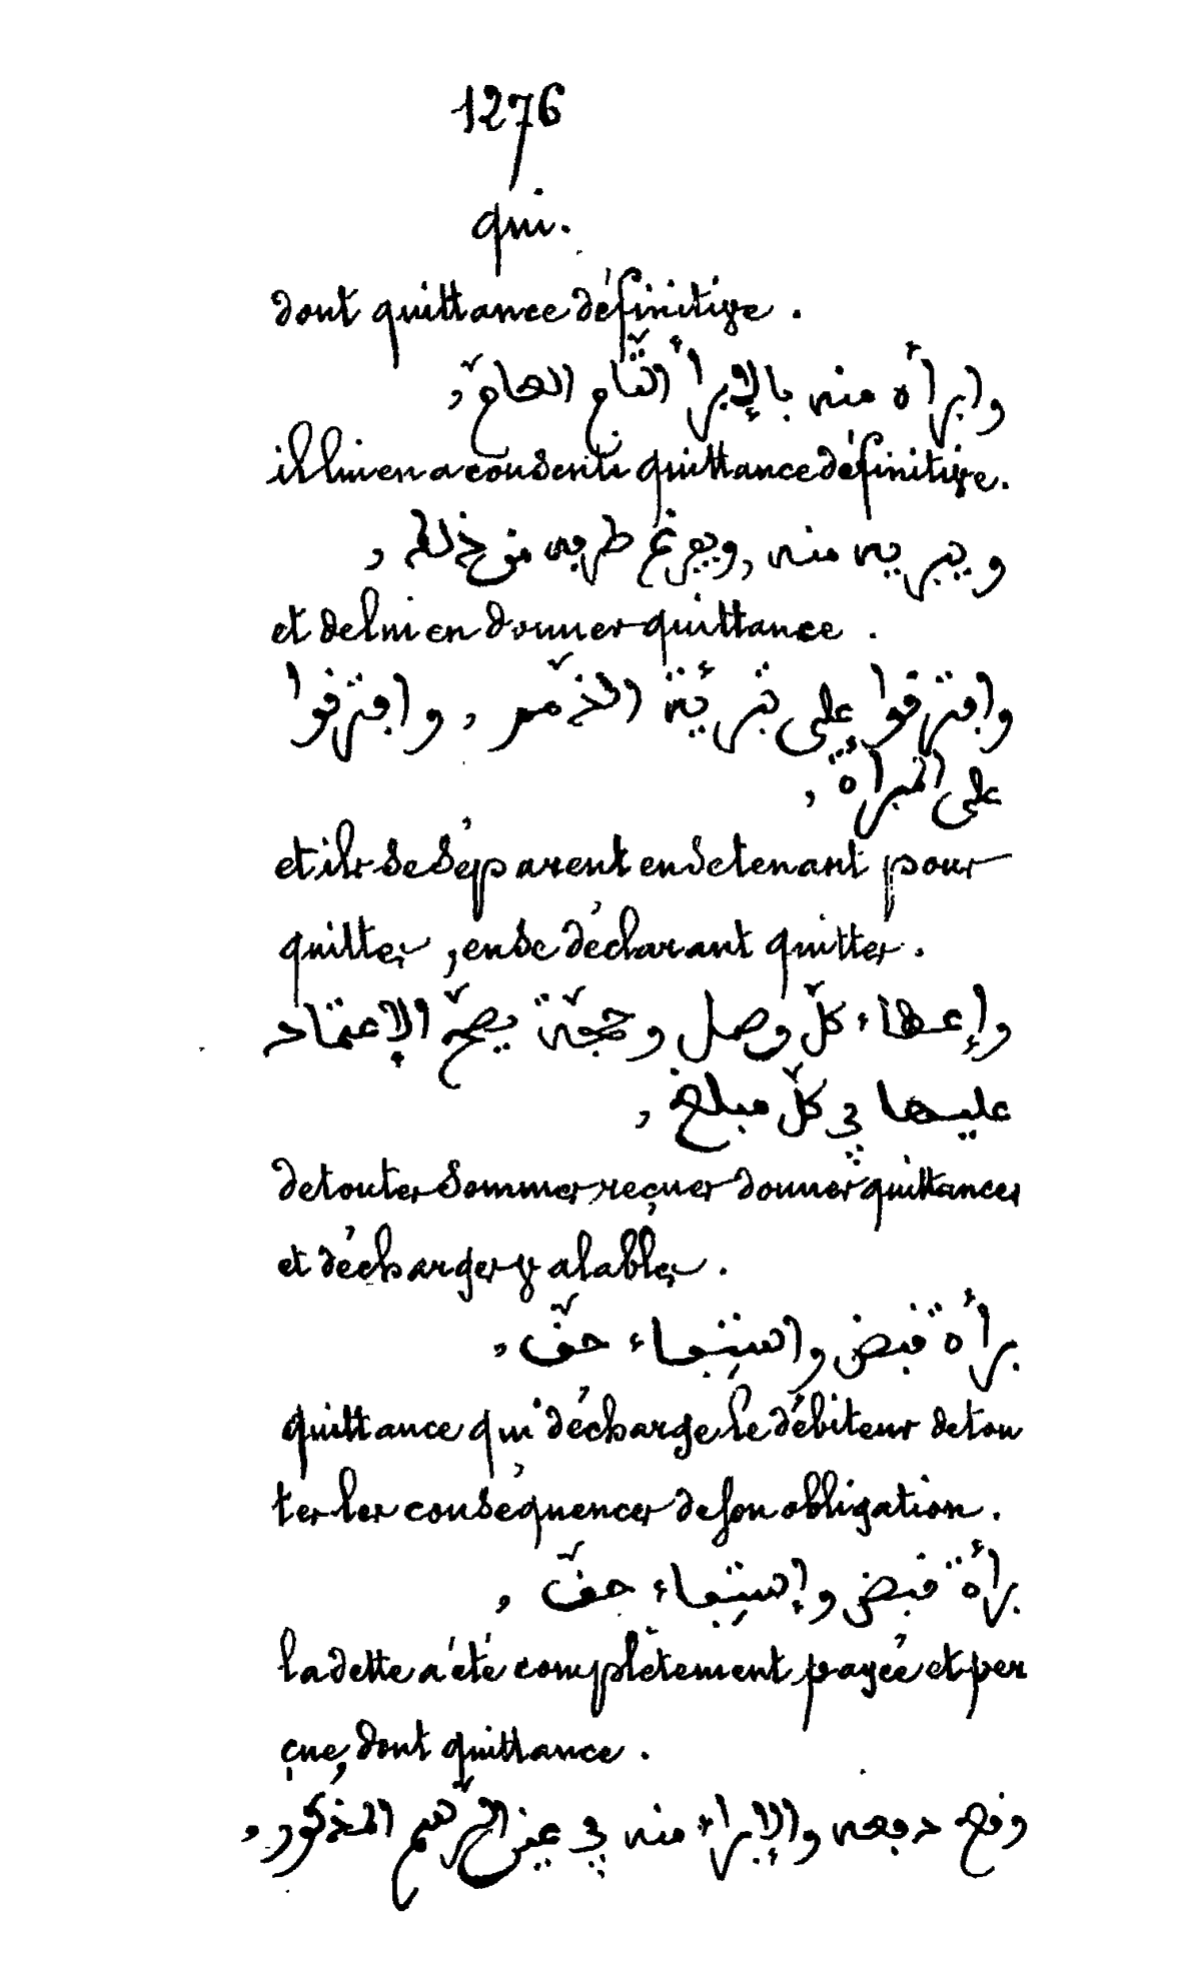 1276
qui.
dont quittance définitive.
وابرأه منه بالإبرأ التّام العامّ،
il lui en a consenti quittance définitive.
ويبريه منه، ويفرغ طريه من ذلك،
et de lui en donner quittance.
وافترقوا على تبرئة الذّمم، وافترقوا
على المبرأة،
et ils se séparent en se tenant pour
quittes, en se déclarant quittes.
وإعطاء كلّ وصل وحجّة يصحّ الإعتماد
عليها في كلّ مبلغ،
de toutes sommes reçues donner quittances
et décharges valables.
برأة قبض واستيفاء حقّ،
quittance qui décharge le débiteur de tou
tes les conséquences de son obligation.
برأة قبض وإستيفاء حقّ،
la dette a été complètement payée et per
çue, dont quittance.
وقع دفعه والإبراء منه في عين الرّسم المذكور،